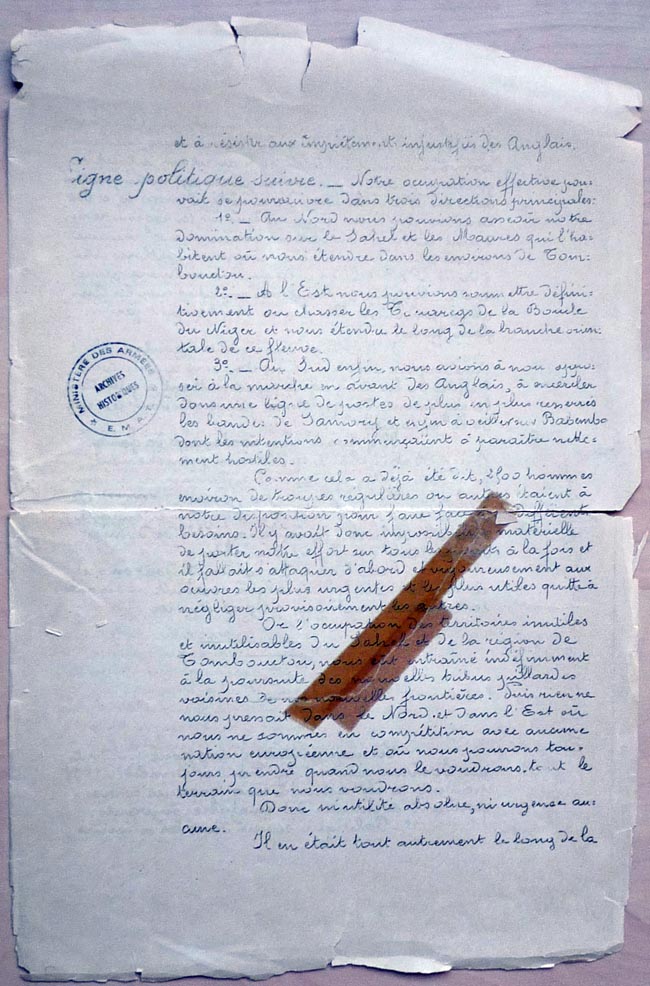 et à résister aux empiètements injustifiés des Anglais.
Ligne politique suivie. _ Notre occupation effective pou-
vait se poursuivre dans trois directions principales:
1º _ Au Nord nous pouvions asseoir notre
domination sur le Sahel et les Maures qui l'ha-
bitent où nous étendre dans les environs de Tom-
bouctou.
2º _ A l'Est nous pouvions soumettre défini-
tivement ou chasser les Touaregs de la Boucle
du Niger et nous étendre le long de la branche orien-
tale de ce fleuve.
3º _ Au Sud enfin, nous avions à nous oppo-
ser à la marche en avant des Anglais, à encercler
dans une ligne de postes de plus en plus resserrés
les bandes de Samory et enfin à veiller sur Babemba
dont les intentions commençaient à paraître nette-
ment hostiles.
Comme cela a déjà été dit, 2500 hommes
environ de troupes régulières ou autres étaient à
notre disposition pour faire face à différents
besoins. Il y avait donc impossibilité matérielle
de porter notre effort sur tous les points à la fois et
il fallait s'attaquer d'abord et vigoureusement aux
œuvres les plus urgentes et les plus utiles quitte à
négliger provisoirement les autres.
Or l'occupation des territoires inutiles
et inutilisables du Sahel et de la région de
Tombouctou, nous eut entraîné indéfiniment
à la poursuite des nouvelles tribus pillardes
voisines de nos nouvelle frontières. Puis rien ne
nous pressait dans le Nord et dans l'Est où
nous ne sommes en compétition avec aucune
nation européenne et où nous pouvons tou-
jours prendre quand nous le voudrons, tout le
terrain que nous voudrons.
Donc ni utilité absolue, ni urgence au-
cune.
Il en était tout autrement le long de la
MINISTERE DES ARMEES
ARCHIVES
HISTORIQUES
E.M.A.T.